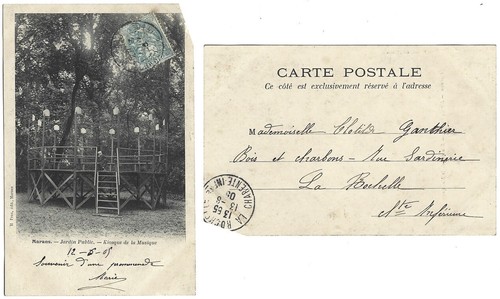 Marans. — Jardin Public. — Kiosque de la Musique
12-5-05
Souvenir d'une promenade
Marie
CARTE POSTALE
Ce côté est exclusivement réservé à l'adresse
Mademoiselle Clotilde Gauthier
Bois et charbons - Rue Sardinerie
La Rochelle
LA
CHARENTE-INF